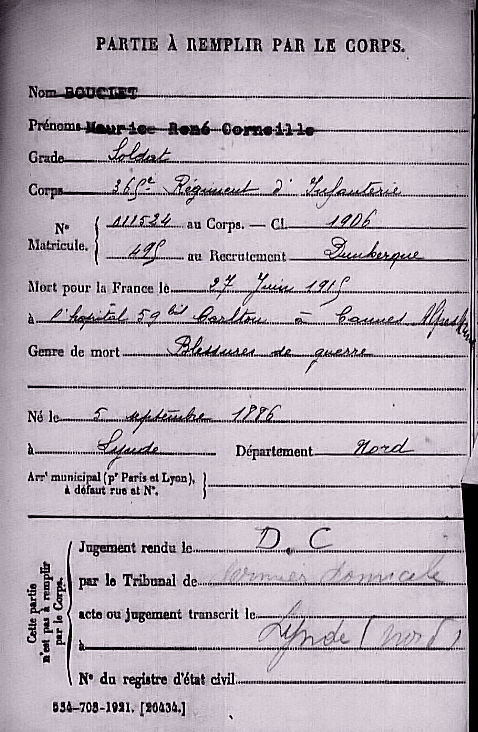 PARTIE À REMPLIR PAR LE CORPS.
Nom BOUCLET
Prénoms Maurice René Corneille
Grade Soldat
Corps 365e Régiment d'Infanterie
N° Matricule. { 111524 au Corps. — Cl. 1906
495 au Recrutement Dunkerque
Mort pour la France le 27 Juin 1915
à l'hôpital 59 bis Carlton à Cannes
Genre de mort Blessures de guerre
Né le 5 septembre 1886
à Lynde Département Nord
Arrt municipal (pr Paris et Lyon), à défaut rue et N°.
Cette partie n'est pas à remplir par le Corps.
Jugement rendu le D. C
par le Tribunal de dernier domicile
acte ou jugement transcrit le
à Lynde (nord)
N° du registre d'état civil
534-708-1921. [26434.]